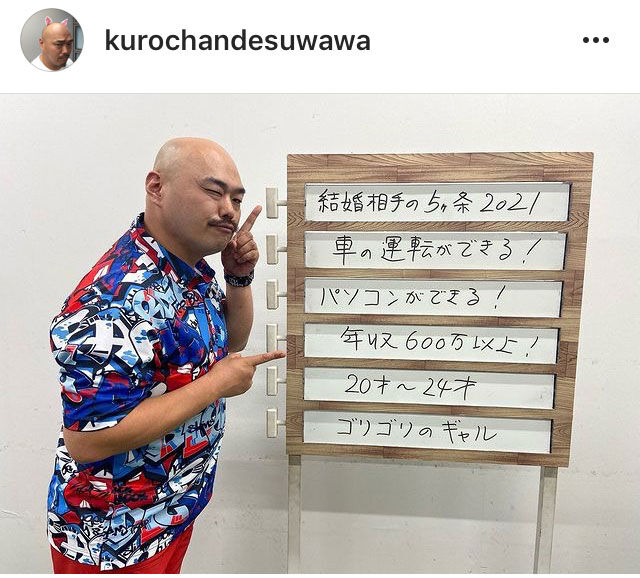 kurochandesuwawa
結婚相手の5ヶ条 2021
車の運転ができる!
パソコンができる!
年収600万以上!
20才～24才
ゴリゴリのギャル